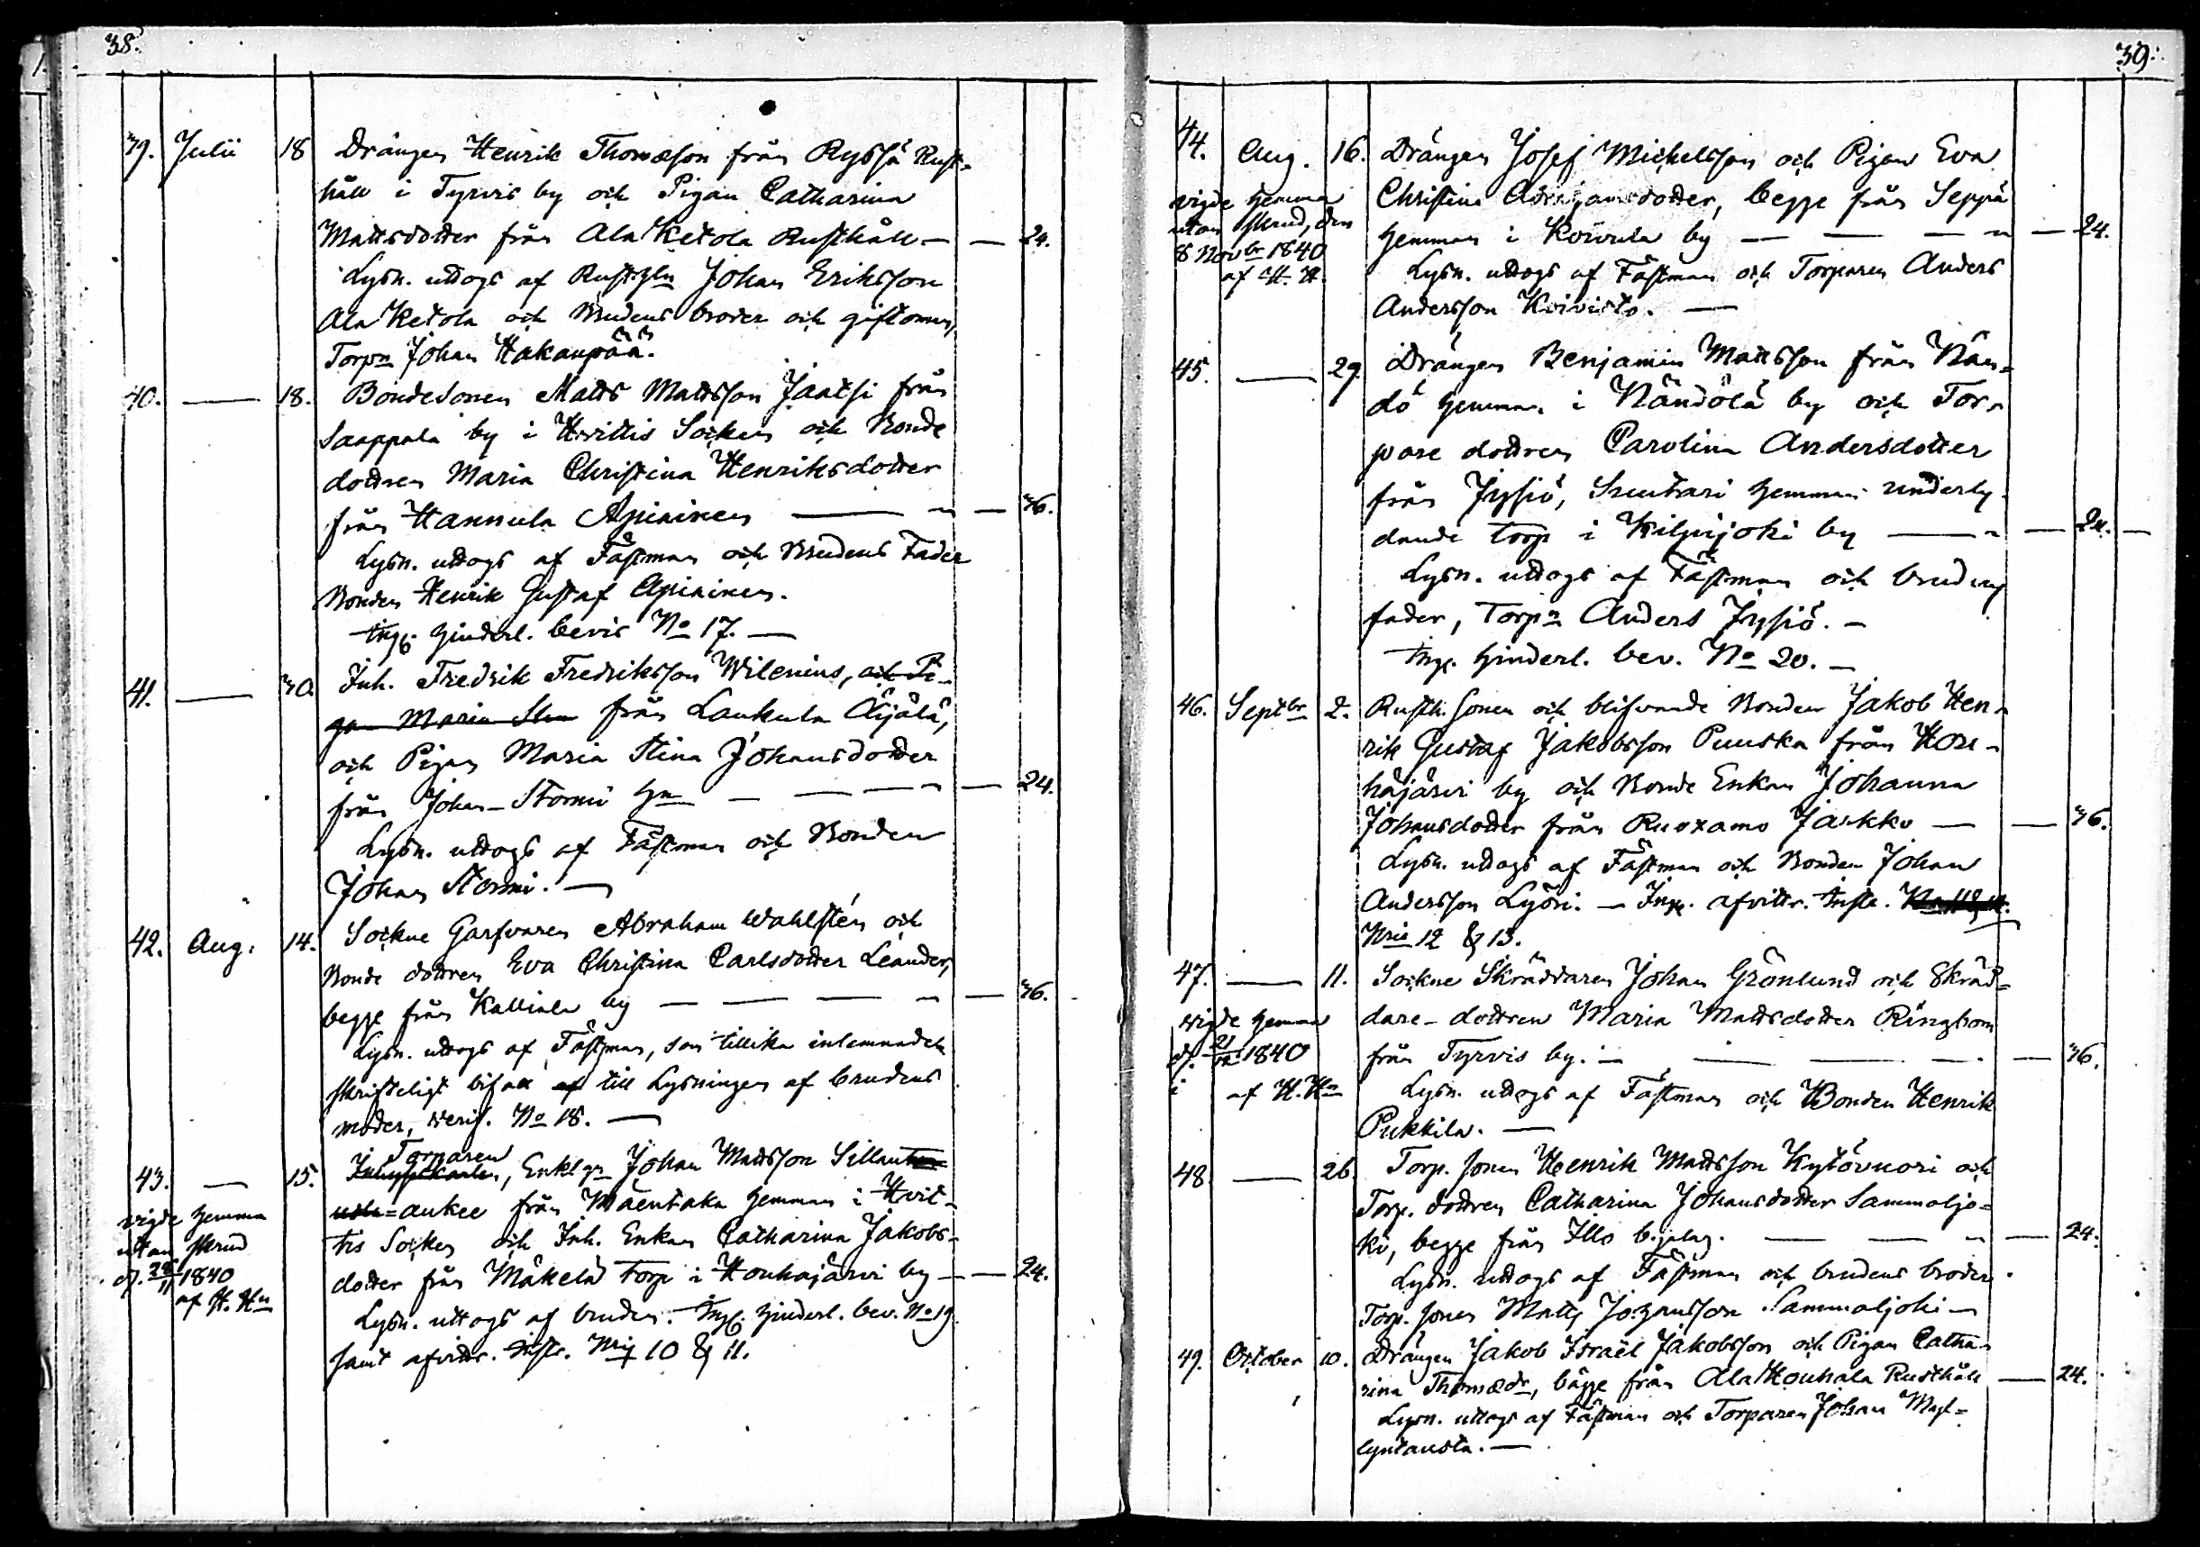 38.
39. Julii 18 Drängen Henrik Thomæson från Ryssä Rust-
håll i Tyrvis by och Pigan Catharina
Mattsdotter från Ala Ketola Rusthåll — — 24.
Lysn. uttogs af Rusth:n Johan Eriksson
Ala Ketola och Brudens broder och giftoman,
Torpn Johan Hakanpää.
40. — 18. Bondesonen Matts Mattsson Jaatsi från
Saappala by i Hvittis Socken och Bonde
dottren Maria Christina Henriksdotter
från Hannula Apiainen — 36.
Lysn. uttogs af Fästman och Brudens Fader
Bonden Henrik Gustaf Apiainen.
Ing. hinderl. bevis No 17. —
41. — 30 Inh. Fredrik Fredriksson Wilenius, och Pi-
gan Maria Stin från Laukula Äijälä,
och Pigan Maria Stina Johansdotter
från Johan-Stormi Hn — — — 24.
Lysn. uttogs af Fästman och Bonden
Johan Stormi. —
42. Aug. 14. Sockne Garfvaren Abraham Wahlstén och
Bonde dottren Eva Christina Carlsdotter Leander,
begge från Kalliala by — — — 36.
Lysn. uttogs af Fästman, som tillika inlemnade
skrifteligt bifall af till Lysningen af brudens
moder, verif. No 18. —
Torparen
43. — 15. Inhyseskarlen, Enkl:gn Johan Mattsson Sillan
-aukee från Mäentaka hemman i Hvit-
tis Socken och Inh. Enkan Catharina Jakobs-
dotter från Mäkelä torp i Houhajärvi by — 24.
Lysn. uttogs af bruden. Ing. hinderl. bev. No 19
samt afvittr. Instr. Nris 10 & 11.
vigde hemma
utan skrud
d. 28/11 1840
af H. Hn
39.
44. Aug. 16. Drängen Josef Michelsson och Pigan Eva
Christina Adrijansdotter, begge från Seppä
hemman i Koivula by — — — 24.
Lysn. uttogs af Fästman och Torparen Anders
Andersson Koivisto. —
vigde hemma
utan skrud, den
8 Novbr 1840
af H. H.
45. — 29. Drängen Benjamin Mattsson från Nän-
dö hemman i Nändölä by och Tor-
pare dottren Carolina Andersdotter
från Jysiö, Suntari hemman underly-
dande torp i Kilpijoki by — 24. —
Lysn. uttogs af Fästman och brudens
fader, Torpn Anders Jysiö. —
Ing. hinderl. bev. No 20. —
46. Septbr 2. Rusth. sonen och blifvande Bonden Jakob Hen-
rik Gustaf Jakobsson Puuska från Hou-
hajärvi by och Bonde Enkan Johanna
Johansdotter från Ruoxamo Jaakko — — 36.
Lysn. uttogs af Fästman och Bonden Johan
Andersson Lyöri. — Ing. afvittr. Instr.
Nris 12 & 13.
47. — 11. Sockne Skräddaren Johan Grönlund och Skräd-
dare-dottren Maria Mattsdotter Ringbom
från Tyrvis by. — — — 36.
Lysn. uttogs af Fästman och Bonden Henrik
Pukkila. —
vigde hemma
d. 21/12 1840
af H. Hn
48 — 26 Torp. sonen Henrik Mattsson Kytövuori och
Torp. dottren Catharina Johansdotter Sammaljo-
ki, begge från Illo bijolag. — — 24.
Lysn. uttogs af Fästman och brudens broder
Torp. sonen Matts Johansson Sammaljoki —
49. October 10. Drängen Jakob Israël Jakobsson och Pigan Catha-
rina Thomædr, bägge från Ala Houhala Rusthåll — 24.
Lysn. uttogs af Fästman och Torparen Johan Myl-
lyntausta. —